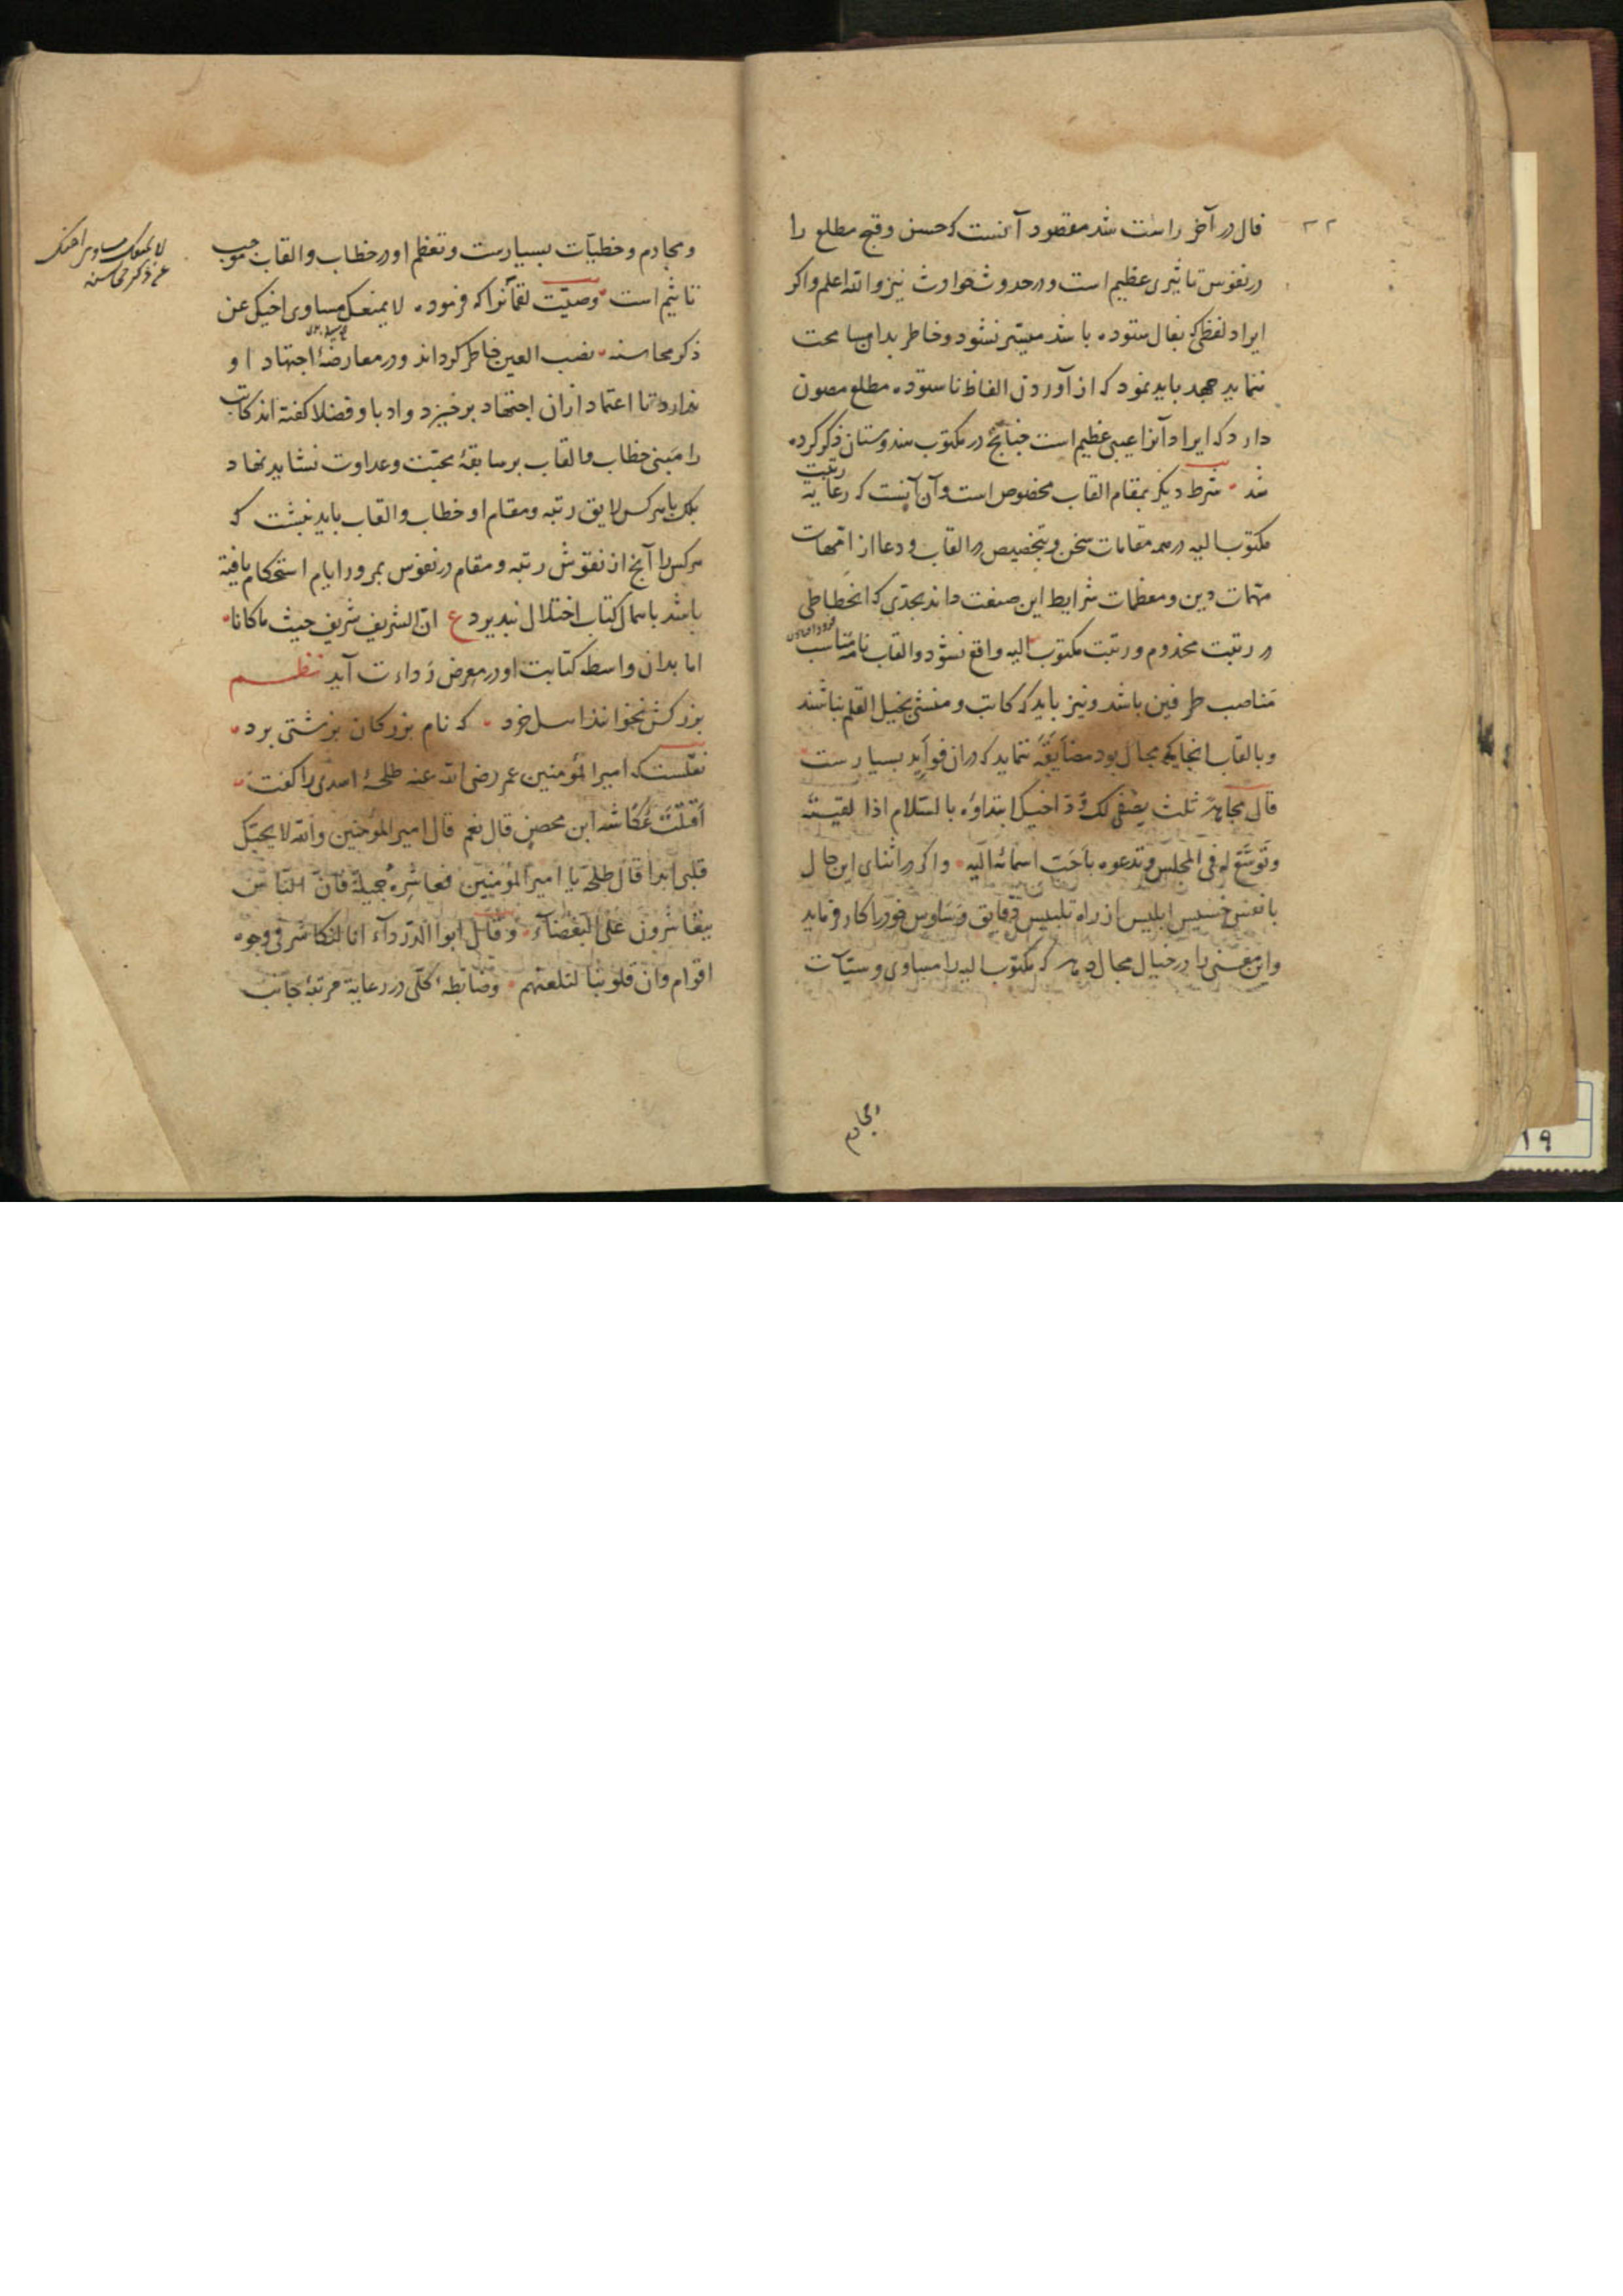 ۲۲
فال در آخر راست شد مقصود آنست که حسن و قبح مطلع را
در نفوس تاثیری عظیم است و در حدوث حوادث نیز والله اعلم واکر
ایراد لفظی که بفال ستوده باشد میسّر نشود و خاطر بدان مسامحت
ننماید جهد باید نمود که از آوردن الفاظ ناستوده مطلع مصون
دارد که ایراد آنرا عیبی عظیم است چنانچه در مکتوب هندوستان ذکر کرده
شد شرط دیکر بمقام القاب مخصوص است و آن آنست که رعایة رتبت
مکتوب الیه در همه مقامات سخن و بتخصیص در القاب و دعا از امّهات
مهمّات دین و معظمات شرایط این صنعت داند بحدّی که انحطاطی
در رتبت مخدوم و رتبت مکتوب الیه واقع نشود و القاب نامه مناسب
مناصب طرفین باشد و نیز باید که کاتب و منشی بخیل القلم نباشند
و بالقاب انجا که مجال بود مضایقه ننماید که دران فواید بسیارست
قال مجاهد ثلث یصفی لک ودّ اخیک ابتداؤه بالسّلام اذا لقیته
وتوسّع له فی المجلس وتدعوه باحبّ اسمائه الیه واکر در اثنای این حال
با نفس خسیس ابلیس از راه تلبیس دقایق وساوس خود را کار فرماید
واین معنی را در خیال مجال دهد که مکتوب الیه را مساوی و سیّآت
ومجادم
ومجادم و خطیآت بسیارست و تعظیم او در خطاب و القاب موجب
تاثیم است وصیّت لقمانرا که فرموده لایمنعک مساوی اخیک عن
ذکر محاسنه نصب العین خاطر کرداند و در معارضهٔ اجتهاد او
ندارد تا اعتماد ازان اجتهاد برخیزد و ادبا و فضلا کفته اند کاتب
را مبنی خطاب و القاب بر سابقهٔ محبّت و عداوت نشاید نهاد
بلک با هر کس لایق رتبه و مقام او خطاب و القاب باید نبشت که
هر کس را آنچ از نقوش رتبه و مقام در نفوس بمرور ایام استحکام یافته
باشد باهمال کتاب اختلال نپذیرد ع انّ الشریف شریف حیث ما کانا
اما بدان واسطه کتابت او در معرض رداءت آید نظم
بزرکش نخوانند اهل خرد که نام بزرکان بزشتی برد
نقلست که امیرالمؤمنین عمر رضی الله عنه طلحهٔ اسدی را کفت
اَقَتَلْتَ عُکّاشه ابن محصن قال نعم قال امیرالمؤمنین والله لایحبّک
قلبی ابدا قال طلحة یا امیرالمؤمنین فمعاشرة جمیلة فانّ النّاس
یتعاشرون علی البغضآء وقال ابوا الدّرداء انا لنکاشر فی وجوه
اقوام وان قلوبنا لتلعنهم وضابطهٔ کلّی در رعایة مرتبهٔ جانب
لایمنعک مساوی اخیک
عن ذکر محاسنه
۱۹